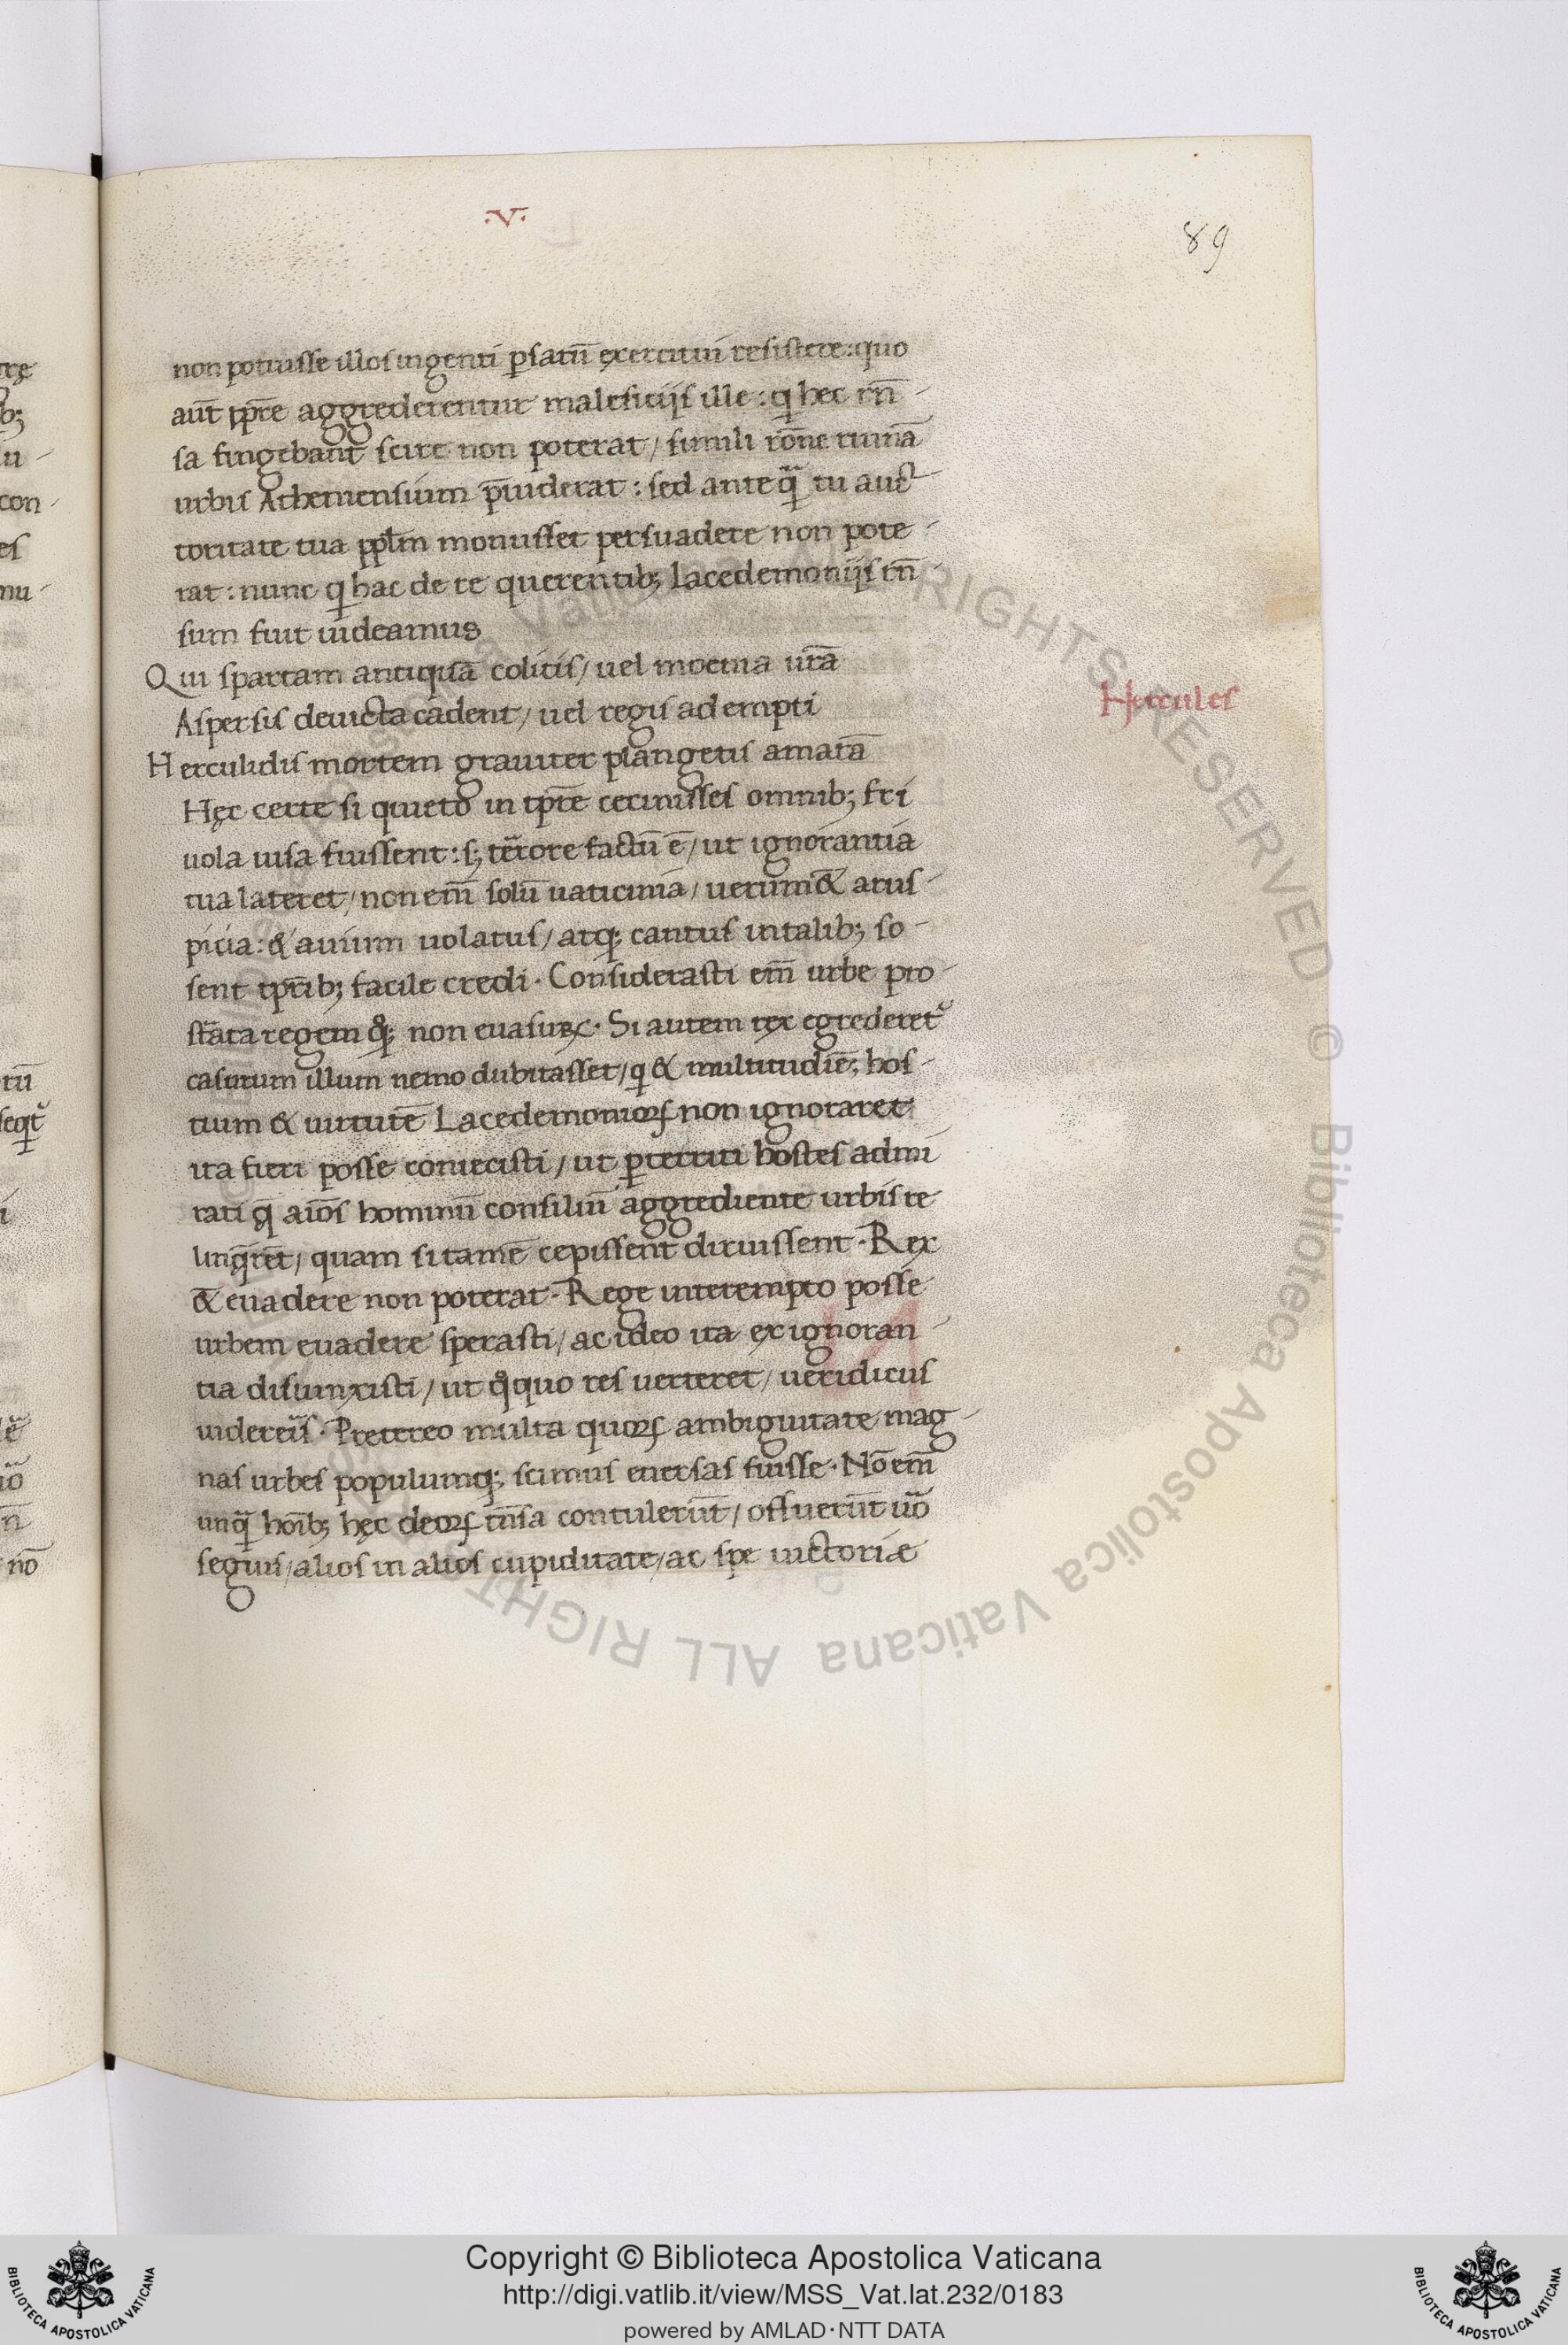 ·V·
89
non potuisse illos ingenti ꝑsaꝝ̄ exercitui resistere: quo
aūt tp̄re aggrederentur maleficijs ille: q hec rn̄-
sa fingebant scire non poterat/ simili rōne ruinā
urbis Atheniensium p̄uiderat: sed anteq̄ tu auc-
toritate tua pplm̄ monuisset persuadere non pote-
rat: nunc q hac de re querentib; lacedemonijs rn̄-
sum fuit uideamus
Qui spartam antiquā colitis/ uel moenia ur̄a
Aspersis deuicta cadent/ uel regis adempti
Herculidis mortem grauiter plangetis amarā
Hercules
Hęc certe si quieto in tp̄re cecinisses omnib; fri
uola uisa fuissent: s; terrore factū ē/ ut ignorantia
tua lateret/ non em̄ solū uaticinia/ uerum & arus-
picia: & auium uolatus/ atq; cantus in talib; so-
lent tp̄rib; facile credi. Considerasti em̄ urbe pro-
strata regem q̊q; non euasuꝝ. Si autem rex egrederet᷑
casurum illum nemo dubitasset/ q & multitudīe; hos-
tium & uirtutē Lacedemonioꝝ non ignoraret
ita fieri posse coniecisti/ ut ꝑterriti hostes admi
rati q aīos hominū consiliū aggrediente urbis re-
linq̄ret/ quam si tamē cepissent diruissent. Rex
& euadere non poterat. Rege interempto posse
urbem euadere sperasti/ ac ideo ita ex ignoran-
tia disiunxisti/ ut q̊quo res uerteret/ ueridicus
uidereris. Pretereo multa quoꝝ ambiguitate mag-
nas urbes populumq; scimus euersas fuisse. Nō em̄
unq̄ hoīb; hęc deoꝝ rn̄sa contulerūt/ offuerūt uō
segnis/ alios in alios cupiditate/ ac spe uictoriæ
Copyright © Biblioteca Apostolica Vaticana
http://digi.vatlib.it/view/MSS_Vat.lat.232/0183
powered by AMLAD·NTT DATA